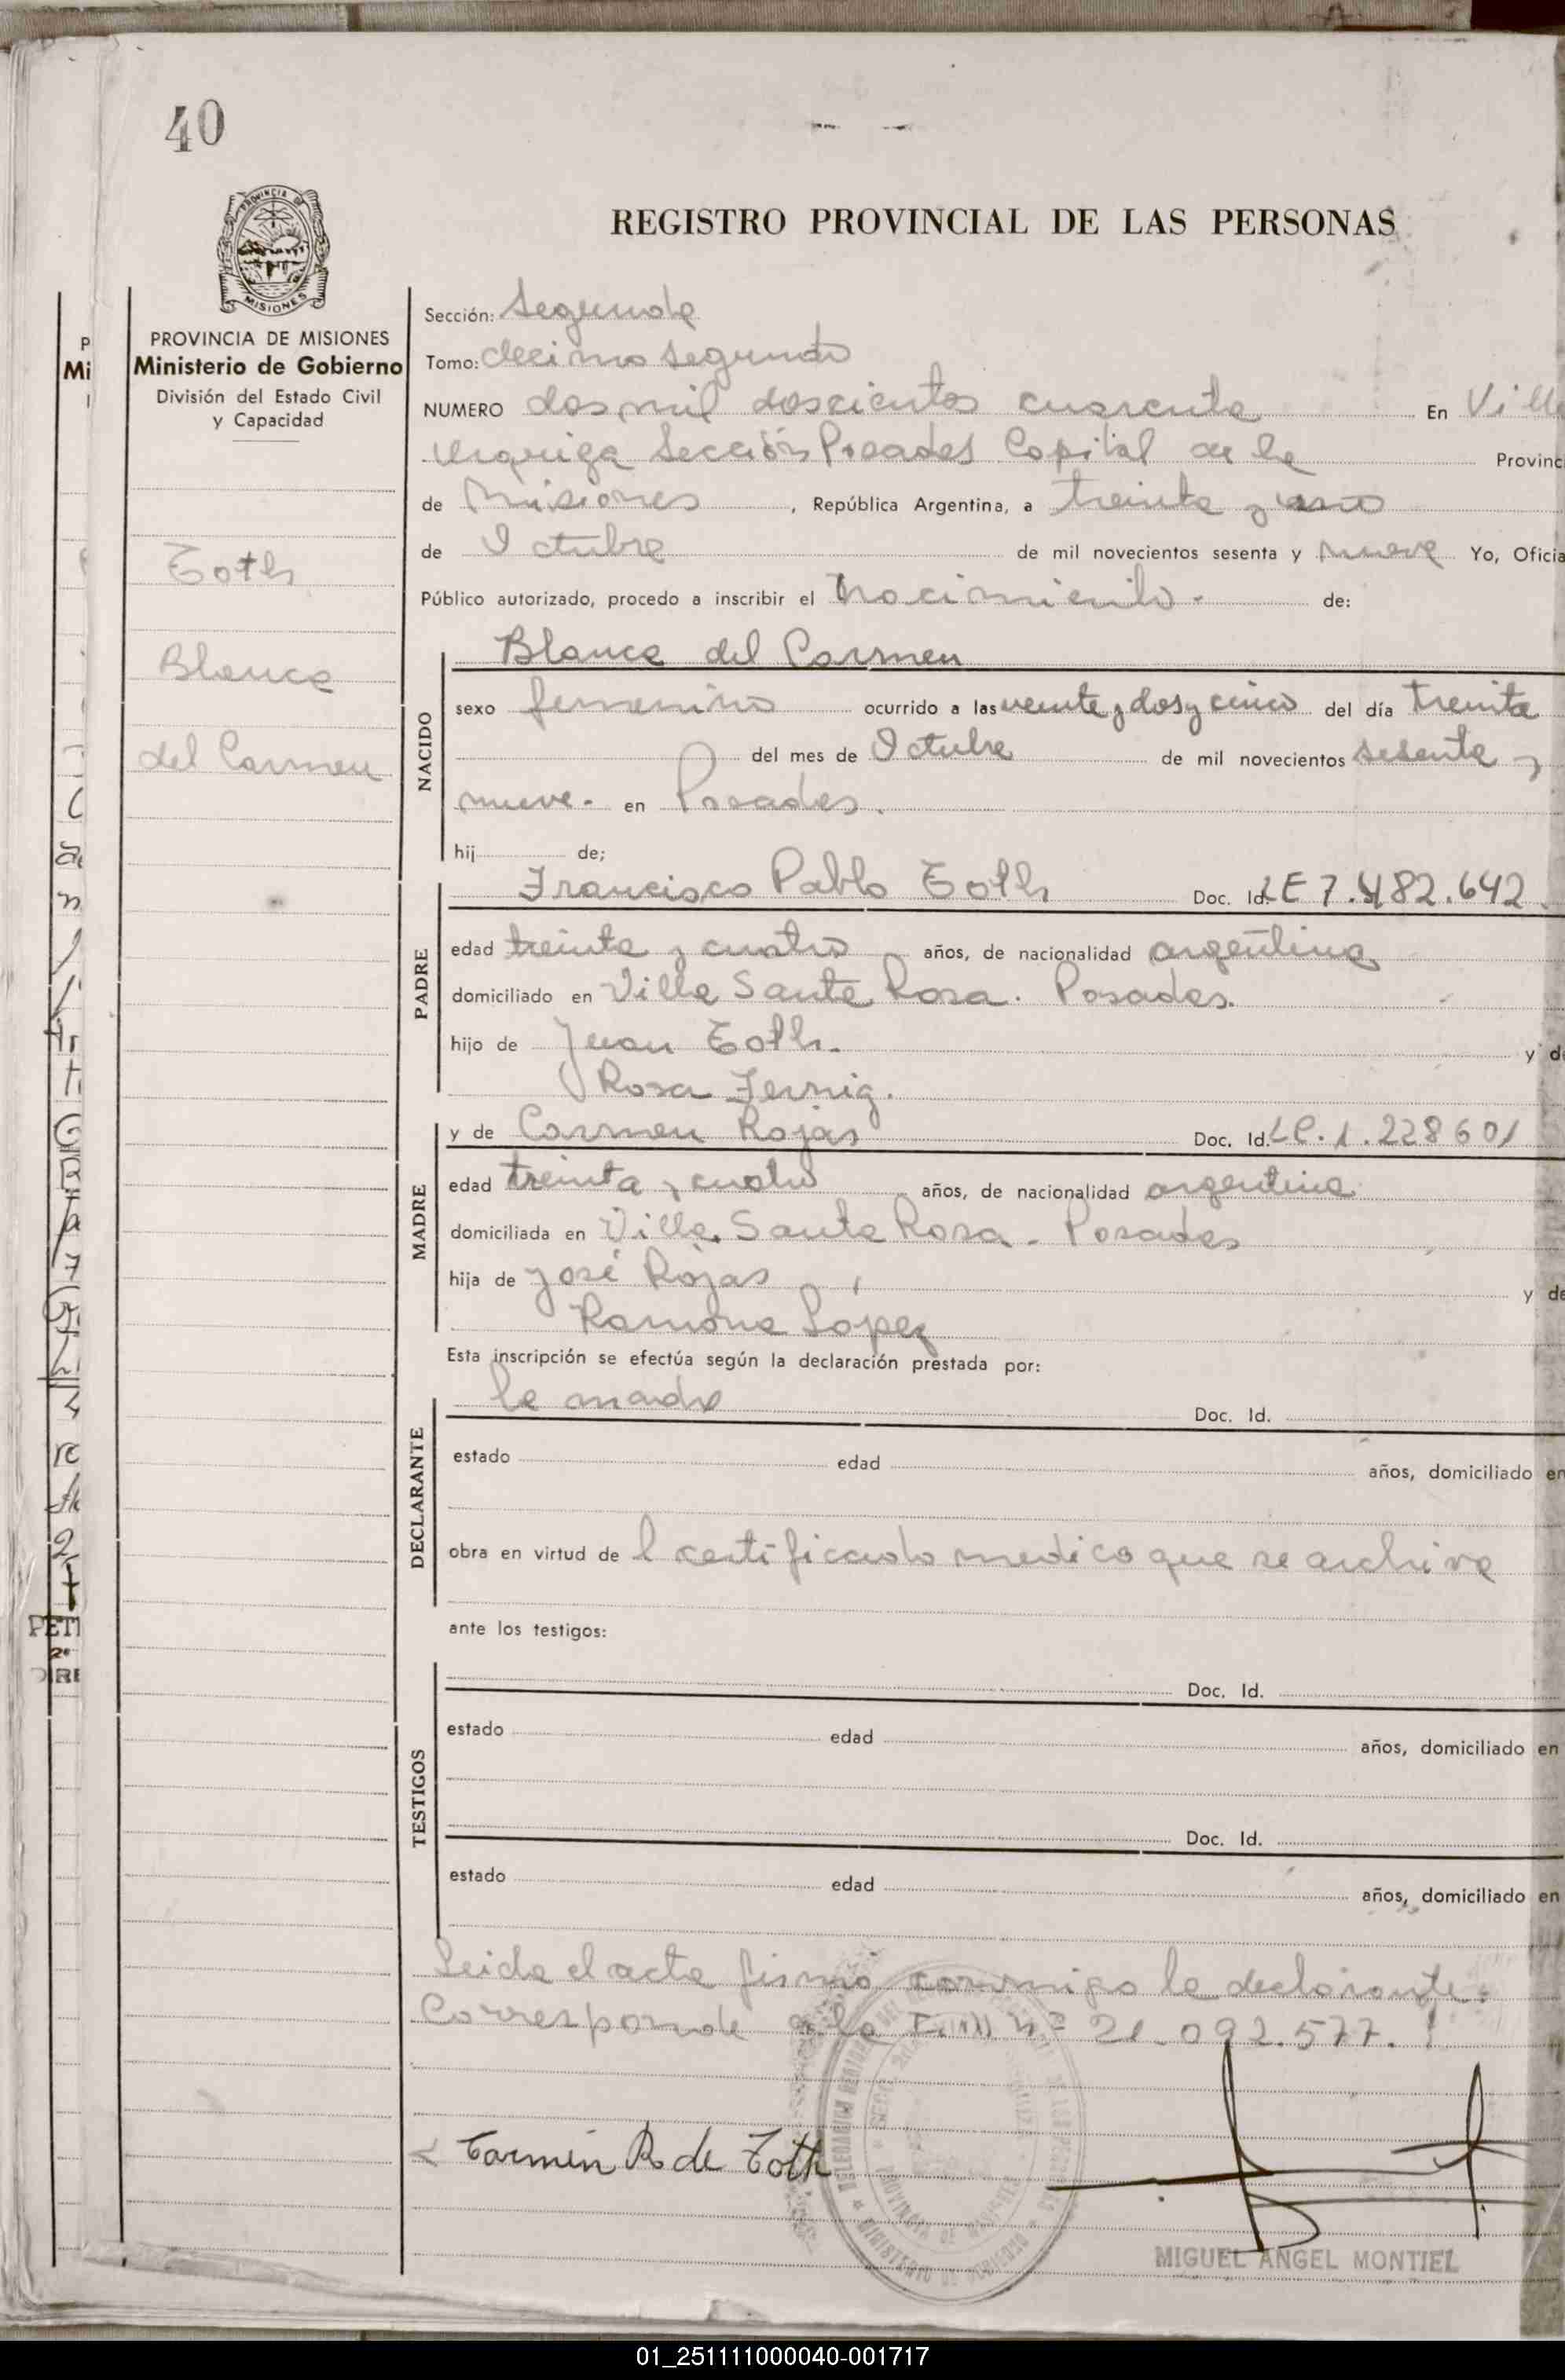 40
PROVINCIA DE MISIONES
REGISTRO PROVINCIAL DE LAS PERSONAS
PROVINCIA DE MISIONES
Ministerio de Gobierno
División del Estado Civil
y Capacidad
Toth
Blanca
del Carmen
Sección: Segunda
Tomo: decimo segundo
NUMERO dos mil doscientos cuarenta En Villa
Urquiza Sección Posadas Capital de la Provinc
de Misiones, República Argentina, a treinta y uno
de Octubre de mil novecientos sesenta y nueve Yo, Oficia
Público autorizado, procedo a inscribir el nacimiento.- de:
NACIDO
Blanca del Carmen
sexo femenino ocurrido a las veinte y dos y cinco del día treinta
del mes de Octubre de mil novecientos sesenta y
nueve.- en Posadas.
hij de;
PADRE
Francisco Pablo Toth Doc. Id. LE 7.482.642.
edad treinta y cuatro años, de nacionalidad argentina
domiciliado en Villa Santa Rosa. Posadas.
hijo de Juan Toth.- y de
Rosa Fernig.
MADRE
y de Carmen Rojas Doc. Id. LC.1.228601
edad treinta y cuatro años, de nacionalidad argentina
domiciliada en Villa Santa Rosa - Posadas
hija de José Rojas y de
Ramona López
Esta inscripción se efectúa según la declaración prestada por:
DECLARANTE
la madre Doc. Id.
estado edad años, domiciliado en
obra en virtud de l certificado medico que se archiva
ante los testigos:
TESTIGOS
Doc. Id.
estado edad años, domiciliado en
Doc. Id.
estado edad años, domiciliado en
Leida el acta firmó conmigo la declarante.
Corresponde a la nº 21.092.577.
Carmen R de Toth
MIGUEL ANGEL MONTIEL
01_251111000040-001717